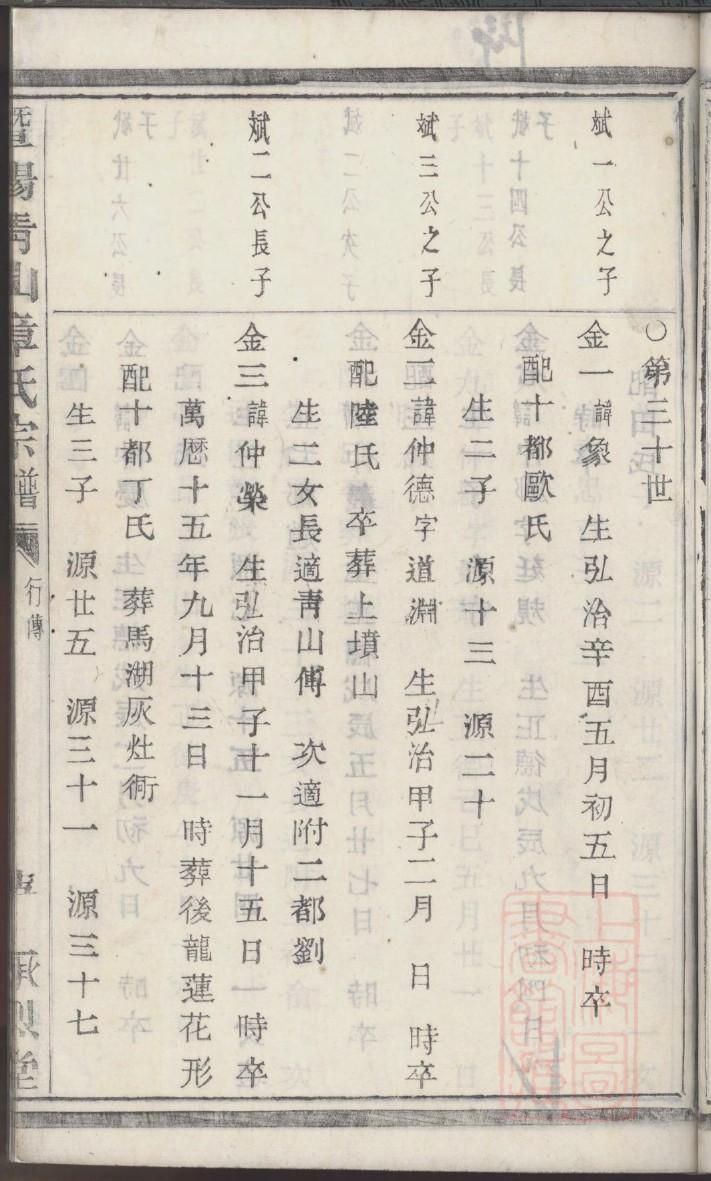 ○第三十世
斌一公之子
金一諱象 生弘治辛酉五月初五日 時卒
配十都歐氏
生二子 源十三 源二十
斌三公之子
金二諱仲德字道淵 生弘治甲子二月 日 時卒
配陸氏卒葬上墳山
生二女長適青山傅 次適附二都劉
斌二公長子
金三諱仲榮 生弘治甲子十一月十五日 時卒
萬歷十五年九月十三日 時葬後龍蓮花形
配十都丁氏 葬馬湖灰灶衕
生三子 源廿五 源三十一 源三十七
暨陽青山章氏宗譜
行傳
承烈堂